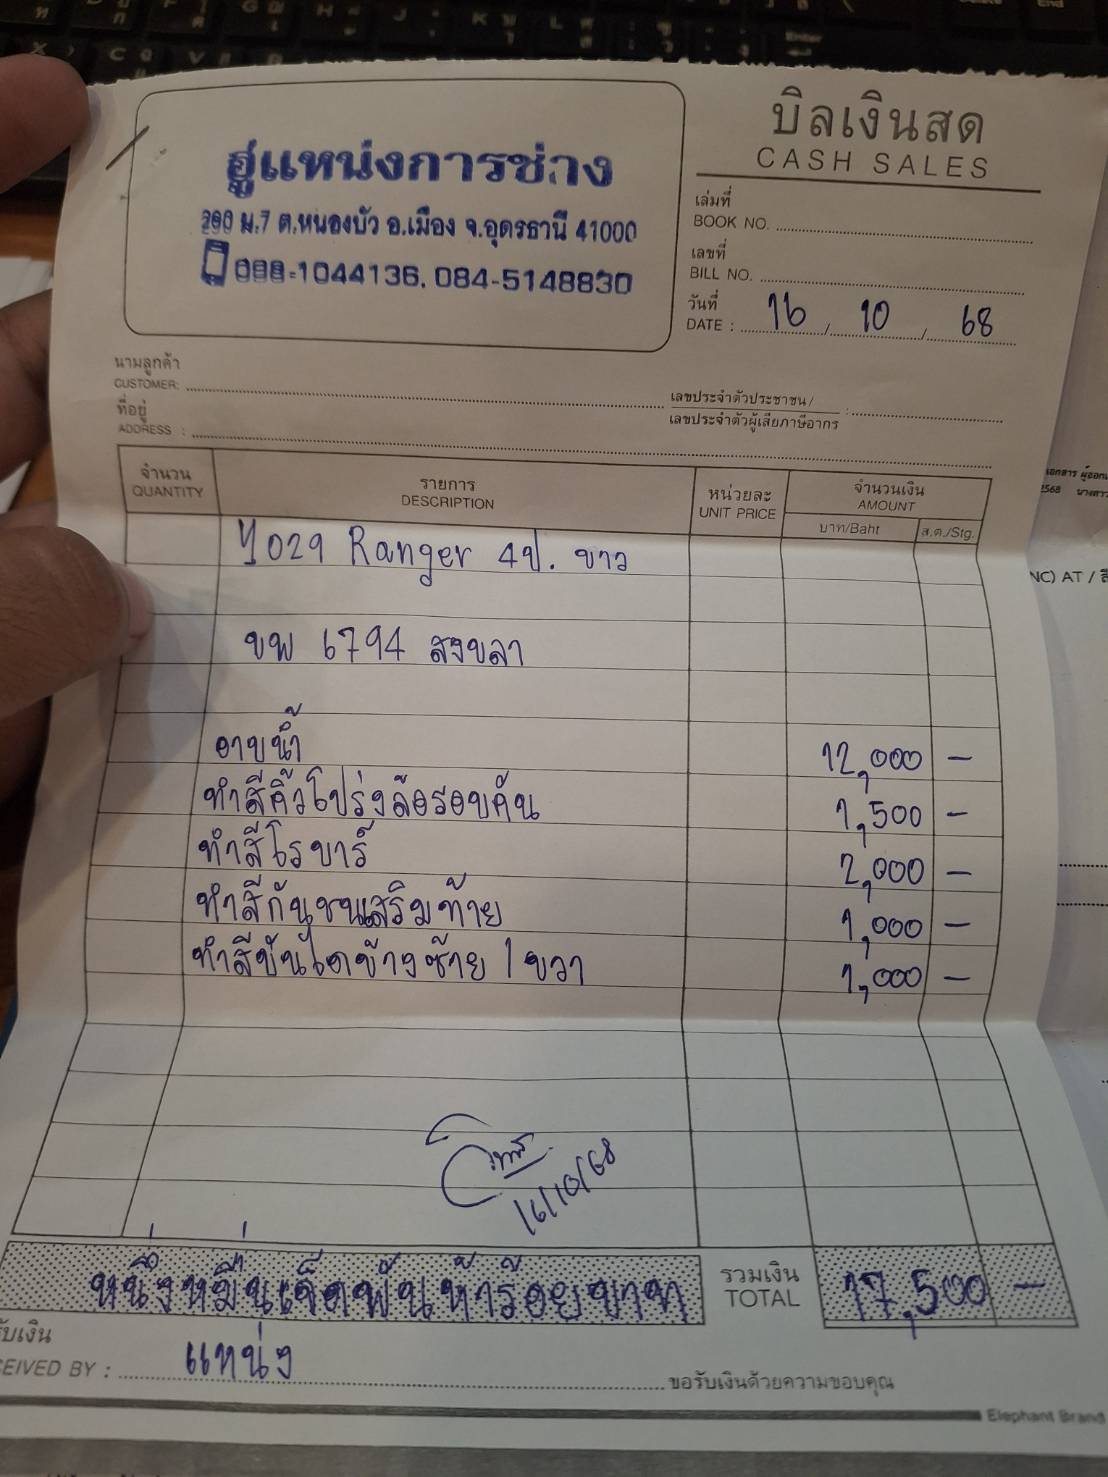 บิลเงินสด
CASH SALES
อู่แหน่งการช่าง
290 ม.7 ต.หนองบัว อ.เมือง จ.อุดรธานี 41000
088-1044136, 084-5148830
เล่มที่
BOOK NO.
เลขที่
BILL NO.
วันที่
DATE : 16 / 10 / 68
นามลูกค้า
CUSTOMER:
ที่อยู่
ADDRESS :
เลขประจำตัวประชาชน/
เลขประจำตัวผู้เสียภาษีอากร :
จำนวน
QUANTITY
รายการ
DESCRIPTION
หน่วยละ
UNIT PRICE
จำนวนเงิน
AMOUNT
บาท/Baht
ส.ต./Stg.
Y029 Ranger 4ป. ขาว
ขพ 6794 สงขลา
อาบน้ำ 12,000 -
ทำสีคิ้วโป่งล้อรอบคัน 1,500 -
ทำสีโรบาร์ 2,000 -
ทำสีกันชนเสริมท้าย 1,000 -
ทำสีบันไดข้างซ้าย / ขวา 1,000 -
16/10/68
หนึ่งหมื่นเจ็ดพันห้าร้อยบาท
รวมเงิน
TOTAL
17,500 -
รับเงิน
CEIVED BY : แหน่ง
ขอรับเงินด้วยความขอบคุณ
Elephant Brand
NC) AT /